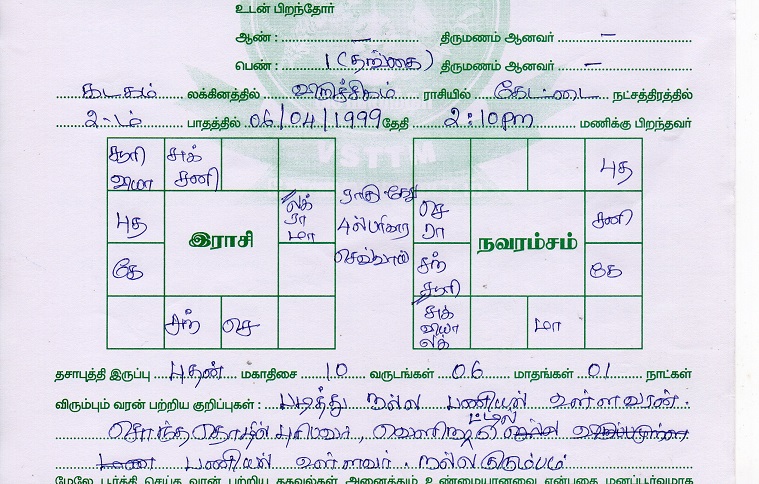 உடன் பிறந்தோர்
ஆண் : – திருமணம் ஆனவர் –
பெண் : 1 (தங்கை) திருமணம் ஆனவர் –
கடகம் லக்கினத்தில் விருச்சிகம் ராசியில் கேட்டை நட்சத்திரத்தில்
2-ம் பாதத்தில் 06/04/1999 தேதி 2:10pm மணிக்கு பிறந்தவர்
சூரி சுக்
வியா சனி
புத
கே
லக்
ரா
மா
இராசி
சந் செ
ராகு கேது
செவ்வாய்
புத
செ
ரா
சனி
நவரம்சம்
சந்
சூரி
கே
சுக்
வியா
லக்
மா
VSTTM
தசாபுத்தி இருப்பு புதன் மகாதிசை 10 வருடங்கள் 06 மாதங்கள் 01 நாட்கள்
விரும்பும் வரன் பற்றிய குறிப்புகள் : படித்து நல்ல பணியில் உள்ளவரன்.
சொந்த தொழில் புரிபவர்,
பணியில் உள்ளவர். நல்ல குடும்பம்
மேலே பூர்த்தி செய்த வரன் பற்றிய தகவல்கள் அனைத்தும் உண்மையானவை என்பதை மனப்பூர்வமாக